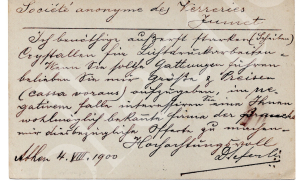 Société anonyme des Verreries
Jumet.
Ich benötige äußerst starken (Scheiben)
Crystallen für Luftdruckarbeiten.
Wenn Sie solche Gattungen führen
belieben Sie mir Größe & Preisen
(cassa voraus) aufzugeben, im ne-
gativem falle interessiren Sie eine Ihnen
wohlmöglich bekannte firma der
mir diesbezügliche Offerte zu machen.
Hochachtungsvoll
Athen 4. VIII. 1900